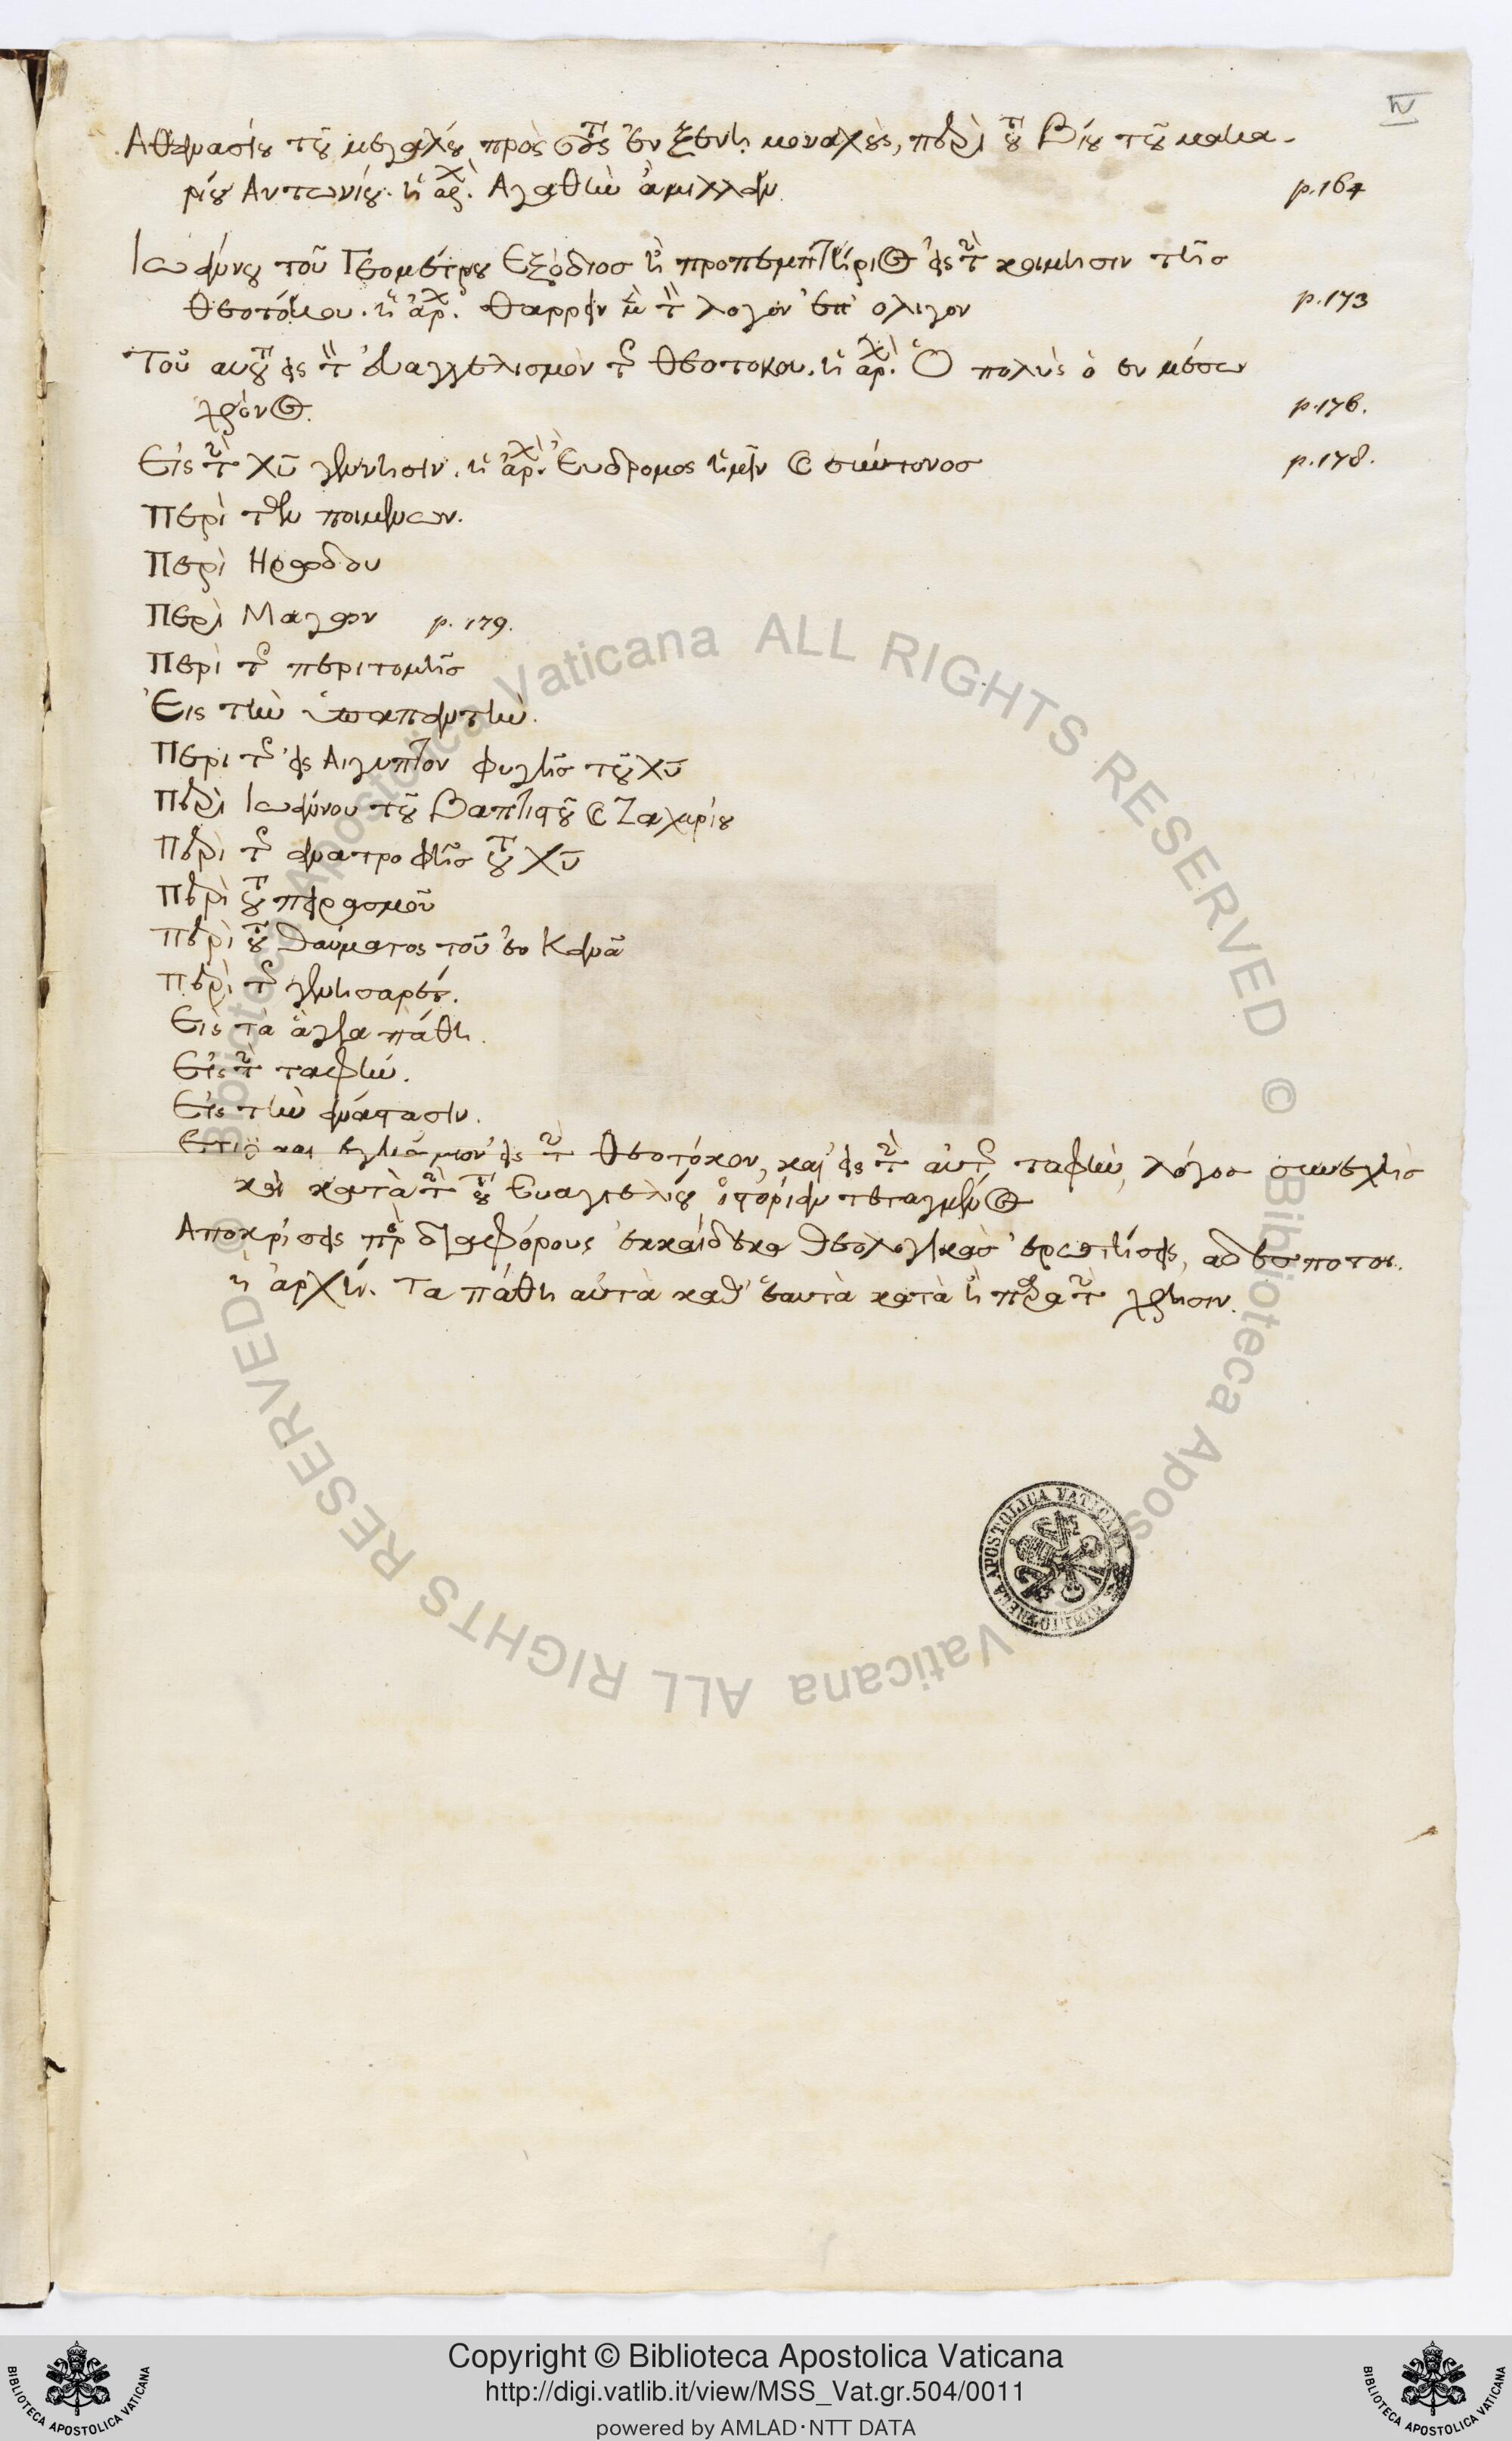 IV
Αθανασίου τοῦ μεγάλου πρὸς τοὺς ἐν ξένῃ μοναχοὺς, περὶ τοῦ Βίου τοῦ μακα-
ρίου Αντωνίου. ἡ ἀρχὴ. Αγαθὴν ἅμιλλαν p.164
Ιωάννου τοῦ Γεομέτρου Εξόδιος ἢ προπεμπτήριος εἰς τὴν κοίμησιν τῆς
θεοτόκου. ἡ ἀρχὴ. θαρρεῖν τὸν λόγον ἐπ' ολιγον p.173
Τοῦ αυτοῦ εἰς τὸν εὐαγγελισμὸν τῆς θεοτοκου. ἡ ἀρχὴ. Ὁ πολὺς ὁ εν μέσω
χρόνος. p.176.
Εἰς τὴν Χῦ γέννησιν. ἡ ἀρχὴ. Ἐυδρομος ἡμῖν καὶ σύντονος p.178.
Περὶ τῶν ποιμένων.
Περὶ Ηρώδου
Περὶ Μαγων p. 179.
Περὶ τῆς περιτομῆς
Ἐις τὴν ὑπαπαντὴν.
Περι τῆς εἰς Αιγυπτον φυγῆς τοῦ Χῦ
Περὶ Ιωάννου τοῦ Βαπτιστοῦ καὶ Ζαχαρίου
Περὶ τῆς ανατροφῆς τοῦ Χῦ
Περὶ τοῦ πειρασμοῦ
Περὶ τοῦ θαύματος τοῦ ἐν Κανᾶ
Περὶ τῆς γεννησαρέτ.
Εἰς τὰ ἅγια πάθη.
Εἰς τὴν ταφήν.
Εἰς τὴν ανάστασιν.
Ετι καὶ εγκώμιον εἰς τὴν Θεοτόκον, καὶ εἰς τὴν αὐτῆς ταφὴν, λόγος συνεχὴς
καὶ κατὰ τὴν τοῦ Ευαγγελίου ἱστορίαν τεταγμένος
Αποκρίσεις πρὸς διαφόρους ἑκκαίδεκα θεολογικὰς ἐρωτήσεις, αδεσποτοι.
ἡ ἀρχή. Τα πάθη αὐτὰ καθ' ἑαυτὰ κατὰ ἢ παρὰ τὴν χρῆσιν.
BIBLIOTHECA APOSTOLICA VATICANA
© Biblioteca Apostolica Vaticana ALL RIGHTS RESERVED © Biblioteca Apostolica Vaticana ALL RIGHTS RESERVED
Copyright © Biblioteca Apostolica Vaticana
http://digi.vatlib.it/view/MSS_Vat.gr.504/0011
powered by AMLAD·NTT DATA
BIBLIOTECA APOSTOLICA VATICANA
BIBLIOTECA APOSTOLICA VATICANA